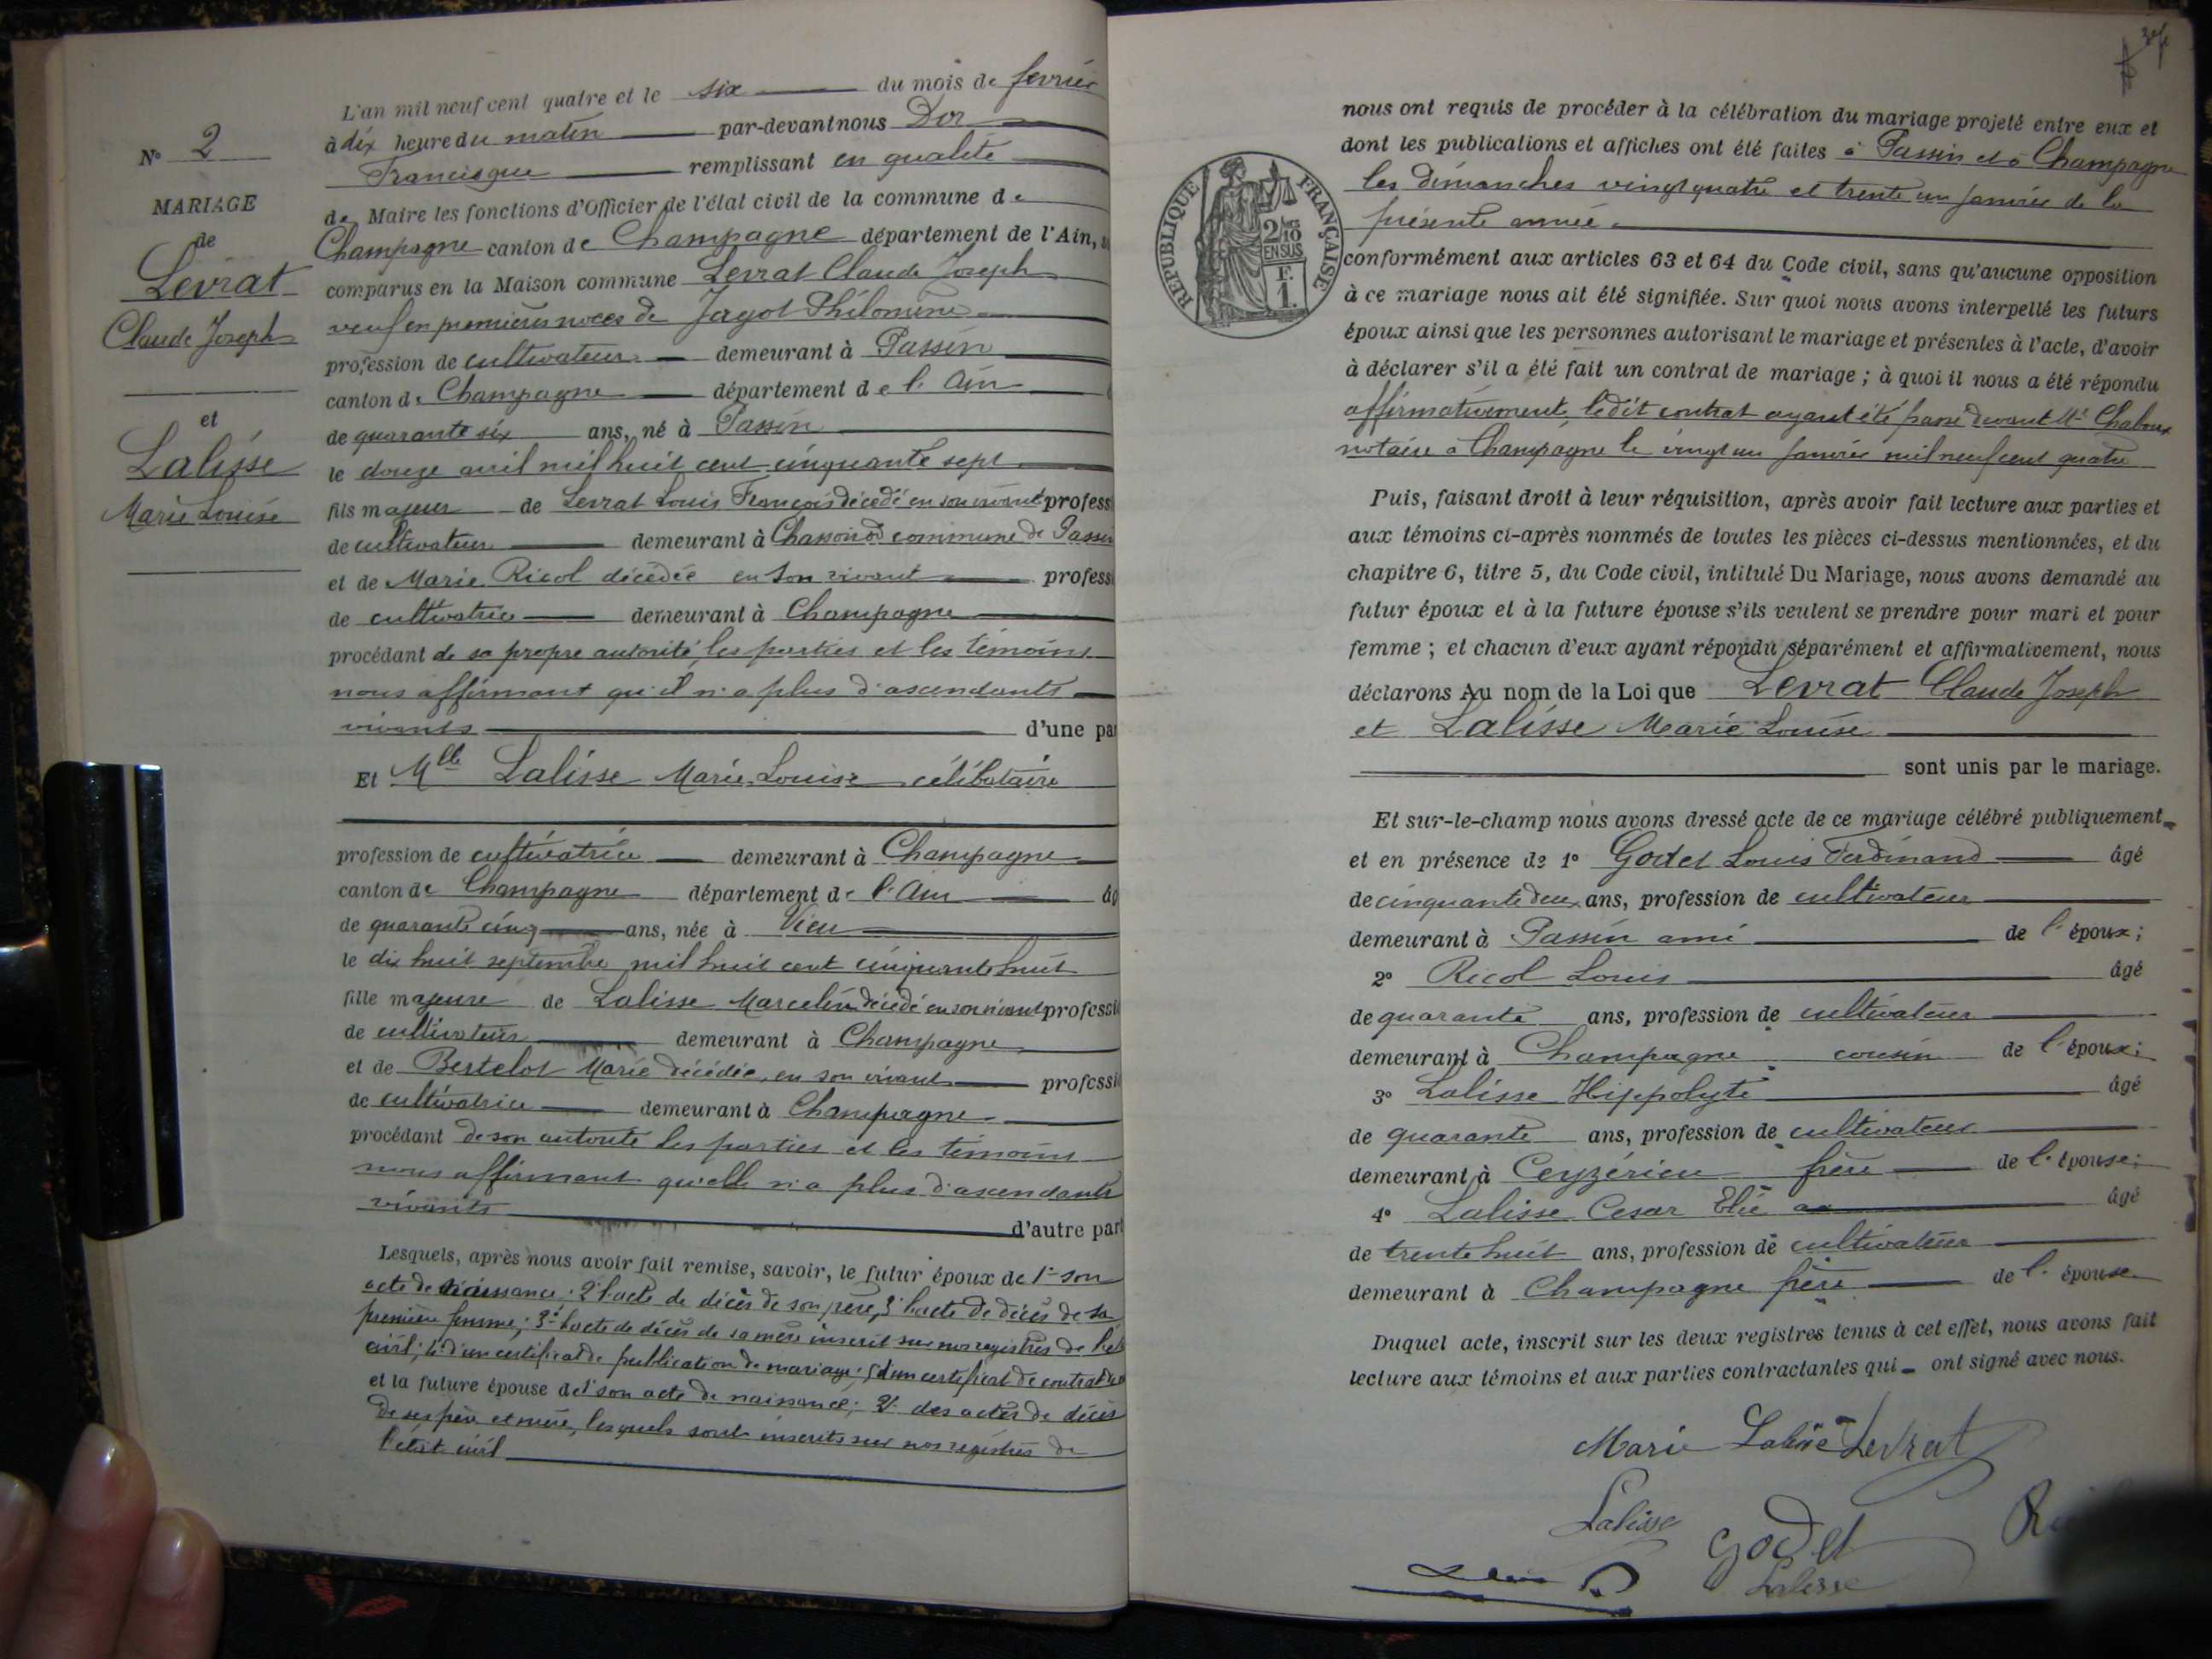 N° 2
MARIAGE
de
Levrat
Claude Joseph
et
Lalisse
Marie Louise
L'an mil neuf cent quatre et le six du mois de fevrier
à dix heure du matin par-devant nous Dor
Francisque remplissant en qualité
de Maire les fonctions d'Officier de l'état civil de la commune de
Champagne canton de Champagne département de l'Ain,
comparus en la Maison commune Levrat Claude Joseph
veuf en premières noces de Jagot Philomène
profession de cultivateur demeurant à Passin
canton de Champagne département de l'Ain
de quarante six ans, né à Passin
le douze avril mil huit cent cinquante sept
fils majeur de Levrat Louis François décédé en son vivant profess
de cultivateur demeurant à Chassonod commune de Passin
et de Marie Ricol décédée en son vivant profess
de cultivatrice demeurant à Champagne
procédant de sa propre autorité, les parties et les témoins
nous affirmant qu'il n'a plus d'ascendants
vivants d'une par
Et Mlle Lalisse Marie Louise célibataire
profession de cultivatrice demeurant à Champagne
canton de Champagne département de l'Ain âg
de quarante cinq ans, née à Vieu
le dix huit septembre mil huit cent cinquante huit
fille majeure de Lalisse Marcelin décédé en son vivant professi
de cultivateur demeurant à Champagne
et de Bertelot Marie décédée, en son vivant professi
de cultivatrice demeurant à Champagne
procédant de son autorité les parties et les témoins
nous affirmant qu'elle n'a plus d'ascendants
vivants d'autre part
Lesquels, après nous avoir fait remise, savoir, le futur époux de 1° son
acte de naissance; 2° l'acte de décès de son père, 3° l'acte de décès de sa
première femme; 3° l'acte de décès de sa mère inscrit sur nos registres de l'état
civil; 4° d'un certificat de publication de mariage; 5° d'un certificat de contrat
et la future épouse de 1° son acte de naissance; 2° des actes de décès
de ses père et mère, lesquels sont inscrits sur nos registres de
l'état civil
RÉPUBLIQUE FRANÇAISE
2/10
EN SUS
F.
1.
nous ont requis de procéder à la célébration du mariage projeté entre eux et
dont les publications et affiches ont été faites à Passin et à Champagne
les dimanches vingt quatre et trente un janvier de la
présente année.
conformément aux articles 63 et 64 du Code civil, sans qu'aucune opposition
à ce mariage nous ait été signifiée. Sur quoi nous avons interpellé les futurs
époux ainsi que les personnes autorisant le mariage et présentes à l'acte, d'avoir
à déclarer s'il a été fait un contrat de mariage ; à quoi il nous a été répondu
affirmativement, ledit contrat ayant été passé devant Me
notaire à Champagne le vingt un janvier mil neuf cent quatre
Puis, faisant droit à leur réquisition, après avoir fait lecture aux parties et
aux témoins ci-après nommés de toutes les pièces ci-dessus mentionnées, et du
chapitre 6, titre 5, du Code civil, intitulé Du Mariage, nous avons demandé au
futur époux et à la future épouse s'ils veulent se prendre pour mari et pour
femme ; et chacun d'eux ayant répondu séparément et affirmativement, nous
déclarons Au nom de la Loi que Levrat Claude Joseph
et Lalisse Marie Louise
sont unis par le mariage.
Et sur-le-champ nous avons dressé acte de ce mariage célébré publiquement
et en présence de 1° Godet Louis Ferdinand âgé
de cinquante deux ans, profession de cultivateur
demeurant à Passin ami de l'époux;
2° Ricol Louis âgé
de quarante ans, profession de cultivateur
demeurant à Champagne cousin de l'époux;
3° Lalisse Hippolyte âgé
de quarante ans, profession de cultivateur
demeurant à Ceyzérieu frère de l'épouse;
4° Lalisse Cesar Elie âgé
de trente huit ans, profession de cultivateur
demeurant à Champagne frère de l'épouse
Duquel acte, inscrit sur les deux registres tenus à cet effet, nous avons fait
lecture aux témoins et aux parties contractantes qui ont signé avec nous.
Marie Lalisse Levrat
Lalisse Godet
Lalisse